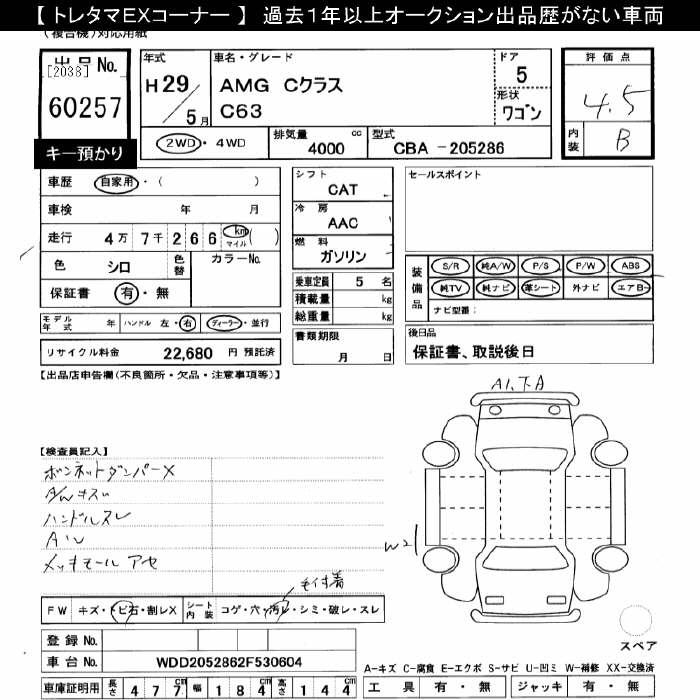 【 トレタマEXコーナー 】 過去1年以上オークション出品歴がない車両
(複合機)対応用紙
出品No.
[2038]
60257
キー預かり
年式
H 29 / 5 月
車名・グレード
AMG Cクラス
C63
ドア
5
形状
ワゴン
評価点
4.5
内装
B
2WD・4WD
排気量 4000 cc
型式 CBA -205286
車歴 自家用・( )
車検 年 月
走行 4万 7千 2 6 6 km マイル ( )
色 シロ 色替
カラーNo.
保証書 有・無
シフト
CAT
冷房
AAC
燃料
ガソリン
乗車定員 5 名
積載量 kg
総重量 kg
セールスポイント
装備品
S/R 純A/W P/S P/W ABS
純TV 純ナビ 革シート 外ナビ エアB
ナビ型番:
モデル年式 年 ハンドル 左・右 ディーラー・並行
リサイクル料金 22,680 円 預託済
書類期限
月 日
後日品
保証書、取説後日
【出品店申告欄(不良箇所・欠品・注意事項等)】
【検査員記入】
ボンネットダンパーX
ハンドルスレ
メッキモール アセ
A1、下A
W2
毛付着
FW キズ・トビ石・割レX シート内装 コゲ・穴・汚レ・シミ・破レ・スレ
登録No.
車台No. WDD2052862F530604
車庫証明用 長さ 477cm 幅 184cm 高さ 144cm
スペア
A-キズ C-腐食 E-エクボ S-サビ U-凹ミ W-補修 XX-交換済
工具 有・無 ジャッキ 有・無